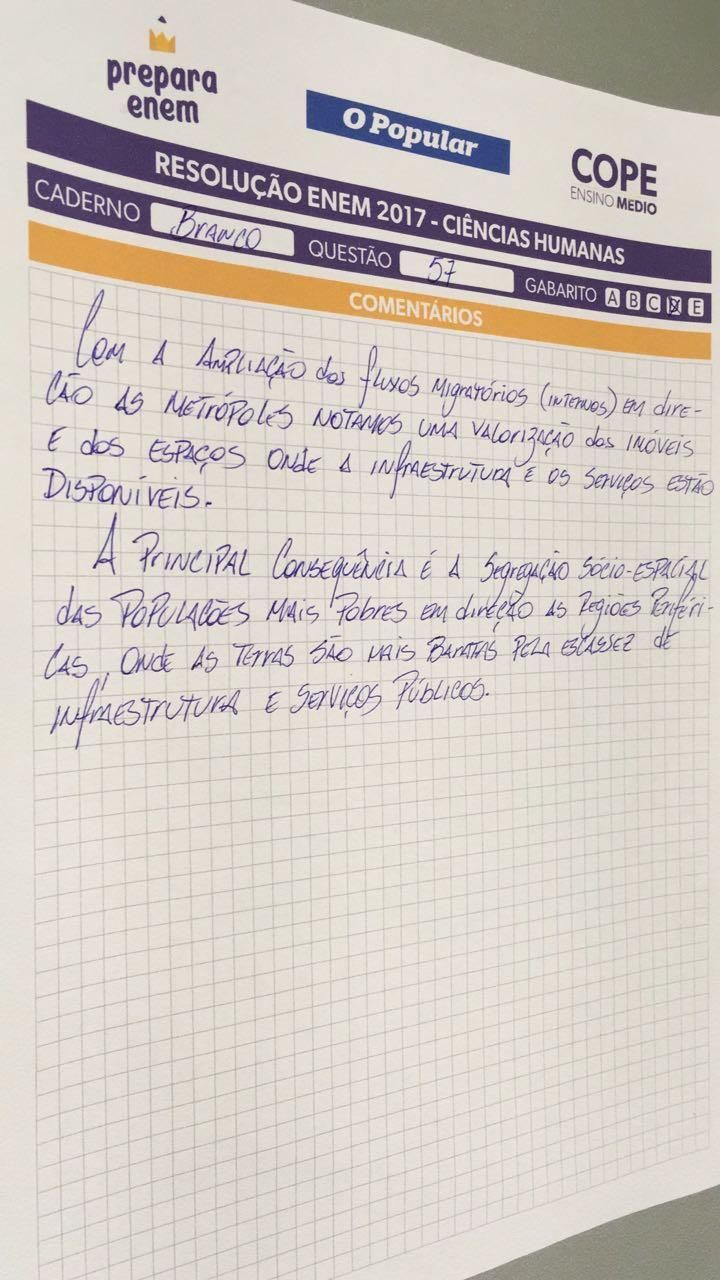 prepara
enem
O Popular
COPE
ENSINO MEDIO
RESOLUÇÃO ENEM 2017 - CIÊNCIAS HUMANAS
CADERNO Branco QUESTÃO 57 GABARITO A B C D E
COMENTÁRIOS
Com A AMPLIAÇÃO dos fluxos MIGRATÓRIOS (INTERNOS) EM DIRE-
ÇÃO AS METRÓPOLES NOTAMOS UMA VALORIZAÇÃO dos IMÓVEIS
E dos ESPAÇOS ONDE A INFRAESTRUTURA E OS SERVIÇOS ESTÃO
DISPONÍVEIS.
A PRINCIPAL CONSEQUÊNCIA É A SEGREGAÇÃO SÓCIO-ESPACIAL
das POPULAÇÕES MAIS POBRES EM dIREÇÃO AS REGIÕES PERIFÉRI-
CAS, ONDE AS TERRAS SÃO MAIS BARATAS PELA ESCASSEZ DE
INFRAESTRUTURA E SERVIÇOS PÚBLICOS.